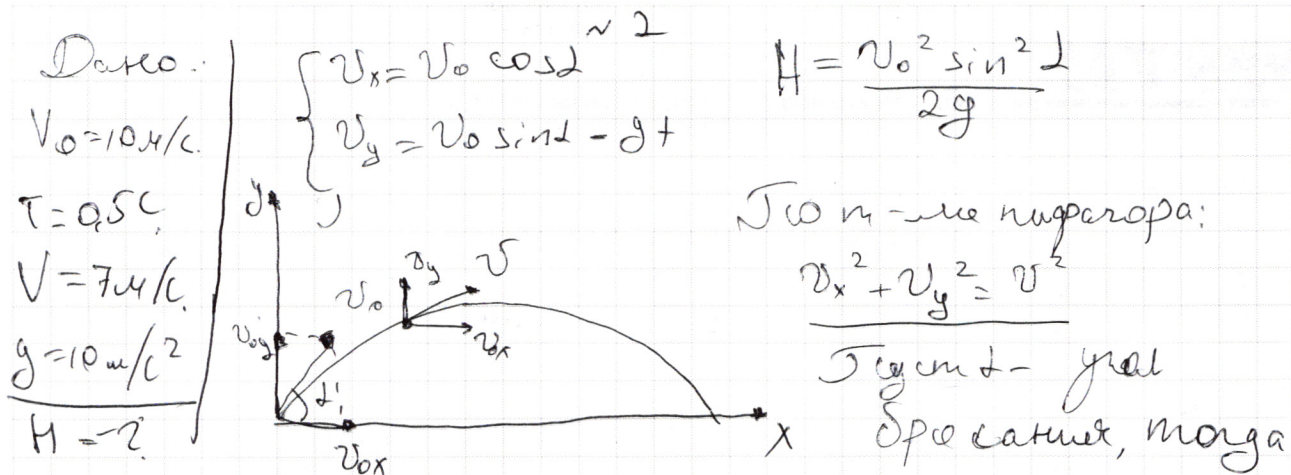 ~ 2
Дано:
V₀ = 10 м/с.
T = 0,5 с.
V = 7 м/с.
g = 10 м/с²
H = -?
Vx = V₀ cosα
Vy = V₀ sinα - gt
y
Vy
V
V₀
V₀y
V₀x
α
V₀x
X
H = V₀² sin² α / 2g
По т-ме пифагора:
Vx² + Vy² = V²
Пусть α - угол
бросания, тогда